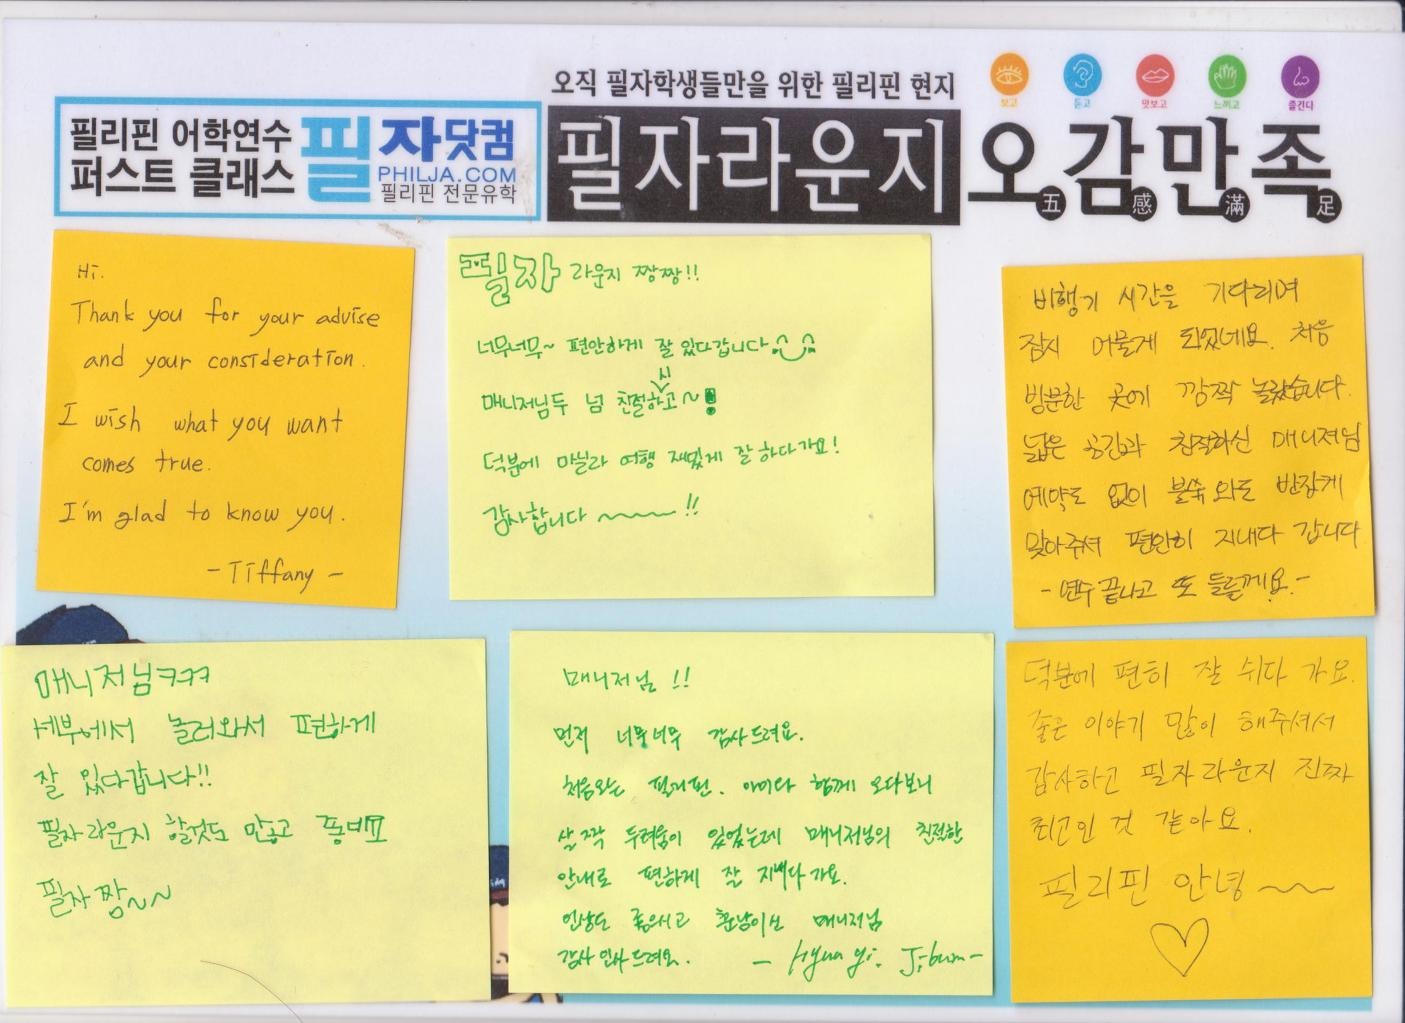 오직 필자학생들만을 위한 필리핀 현지
보고 듣고 맛보고 느끼고 즐긴다
필리핀 어학연수
퍼스트 클래스
필자닷컴
PHILJA.COM
필리핀 전문유학
필자라운지
오감만족
五感滿足
Hi.
Thank you for your advise
and your consideration.
I wish what you want
comes true.
I'm glad to know you.
- Tiffany -
필자 라운지 짱짱!!
너무너무~ 편안하게 잘 있다갑니다
매니저님두 넘 친절하시고~
덕분에 마닐라 여행 재밌게 잘 하다가요!
감사합니다 ~~~~ !!
비행기 시간을 기다리며
잠시 머물게 되었네요. 처음
방문한 곳에 깜짝 놀랐습니다.
넓은 공간과 친절하신 매니저님
예약도 없이 불쑥 와도 반갑게
맞아주셔 편안히 지내다 갑니다
- 연수 끝나고 또 들를게요. -
매니저님ㅋㅋㅋ
세부에서 놀러와서 편하게
잘 있다갑니다!!
필자라운지 할것도 많고
필자 짱~~
매니저님 !!
먼저 너무너무 감사드려요.
처음오는 필리핀. 아이다 함께 오다보니
살짝 두려움이 있었는데 매니저님의 친절한
안내로 편하게 잘 지내다 가요.
인상도 좋으시고 훈남이신 매니저님
감사 인사 드려요. - Hyun yi. Ji-bum -
덕분에 편히 잘 쉬다 가요.
좋은 이야기 많이 해주셔서
감사하고 필자라운지 진짜
최고인 것 같아요.
필리핀 안녕 ~~